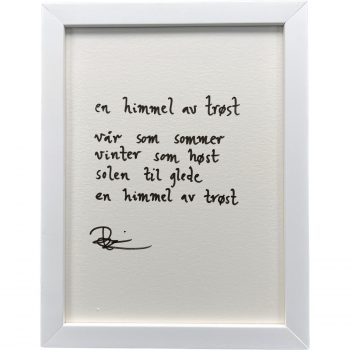 en himmel av trøst
vår som sommer
vinter som høst
solen til glede
en himmel av trøst